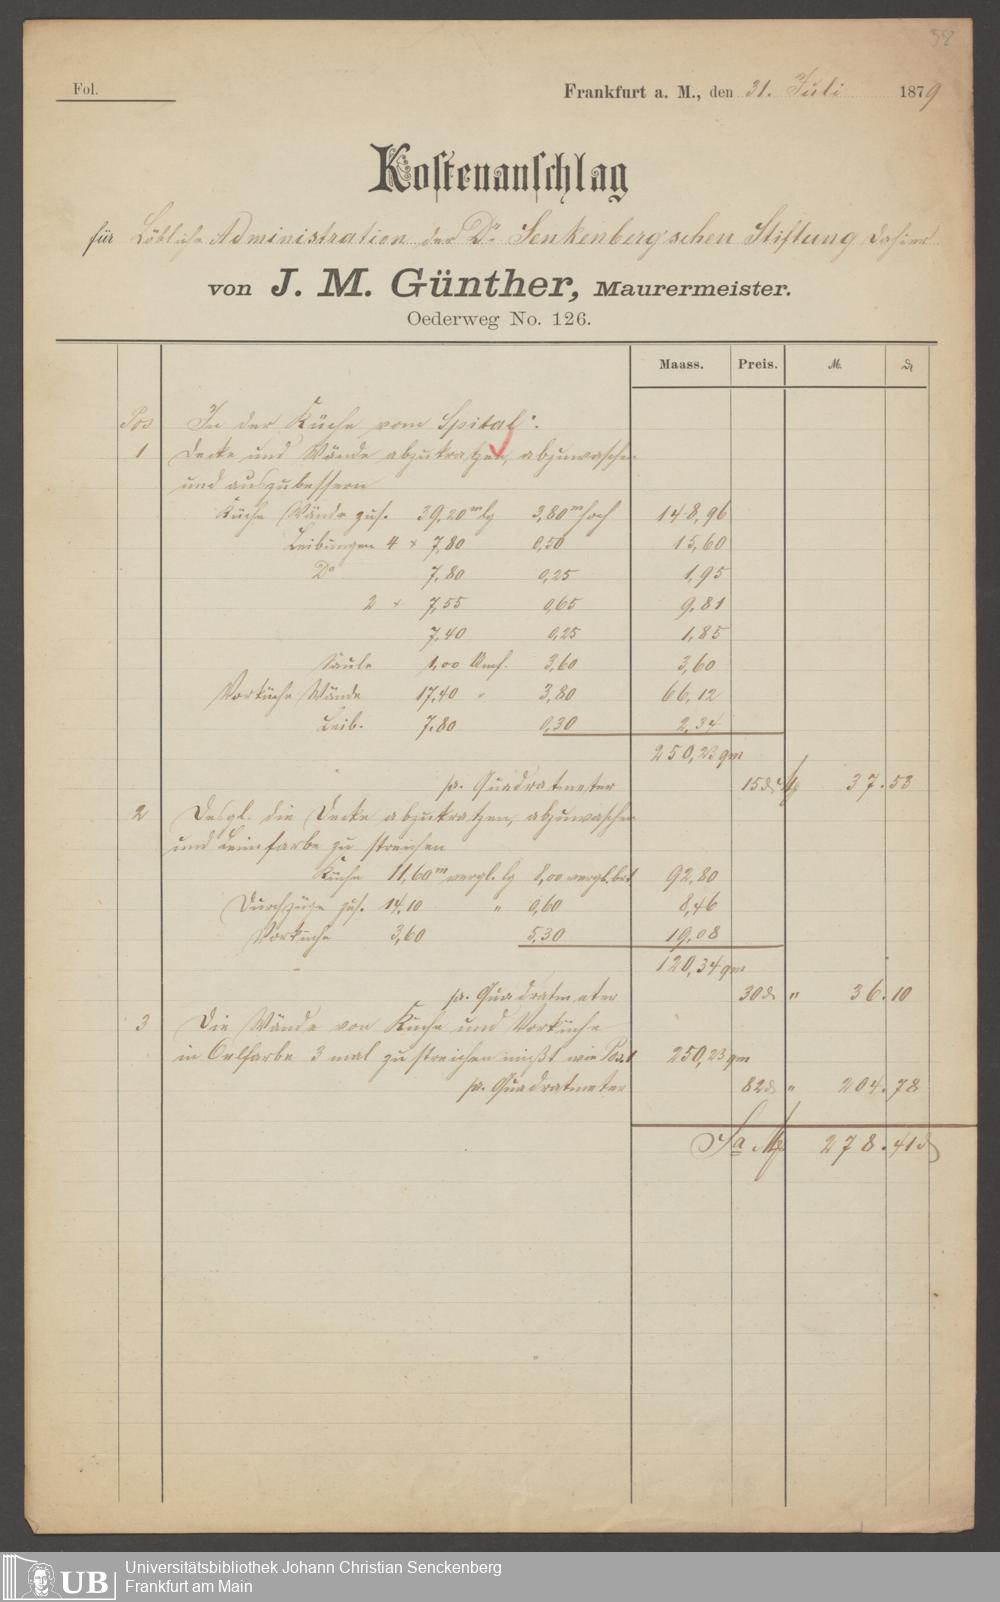 38
Fol.
Frankfurt a. M., den 31. Juli 1879
Kostenanschlag
für Löbliche Administration der Dr. Senkenberg'schen Stiftung dahier
von J. M. Günther, Maurermeister.
Oederweg No. 126.
Maass. Preis. M. ₰
Pos In der Küche vom Spital:
1 Decke und Wände abzukratzen, abzuwaschen
und auszubessern
Küche Wände zus. 39,20 m lg 3,80 m hoch 148,96
Leibungen 4 x 7,80 0,50 15,60
Do 7,80 0,25 1,95
2 x 7,55 0,65 9,81
7,40 0,25 1,85
Säule 1,00 Umf. 3,60 3,60
Vorküche Wände 17,40 " 3,80 66,12
Leib. 7,80 0,30 2,34
250,23 qm
pr. Quadratmeter 15 ₰ M 37.53
2 Desgl. die Decke abzukratzen, abzuwaschen
und Leimfarbe zu streichen
Küche 11,60 m vergl. lg 8,00 vergl. brt 92,80
Durchzüge zus. 14,10 " 0,60 8,46
Vorküche 3,60 5,30 19,08
120,34 qm
pr. Quadratmeter 30 ₰ " 36.10
3 Die Wände von Küche und Vorküche
in Oelfarbe 3 mal zu streichen mißt wie Pos. 1 250,23 qm
pr. Quadratmeter 82 ₰ " 204.78
Sa M 278.41 ₰
UB
Universitätsbibliothek Johann Christian Senckenberg
Frankfurt am Main